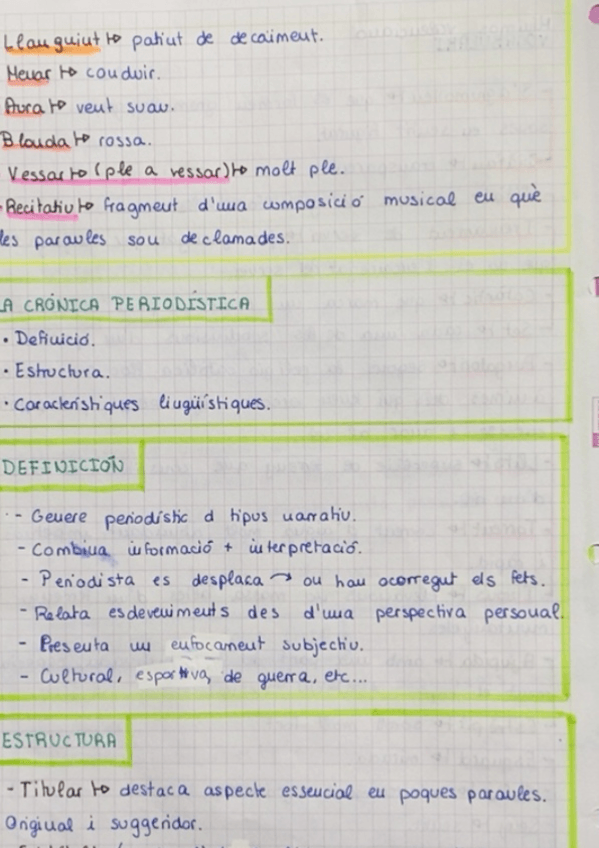 Llanguint → patint de decaïment.
Menar → conduir.
Aura → vent suau.
Blonda → rossa.
Vessar → (ple a vessar) → molt ple.
Recitatiu → fragment d'una composició musical en què
les paraules són declamades.
LA CRÒNICA PERIODÍSTICA
• Definició.
• Estructura.
• Característiques lingüístiques.
DEFINICIÓN
- Gènere periodístic d tipus narratiu.
- Combina informació + interpretació.
- Periodista es desplaça → on han ocorregut els fets.
- Relata esdeveniments des d'una perspectiva personal.
- Presenta un enfocament subjectiu.
- Cultural, esportiva, de guerra, etc...
ESTRUCTURA
- Titular → destaca aspecte essencial en poques paraules.
Original i suggeridor.